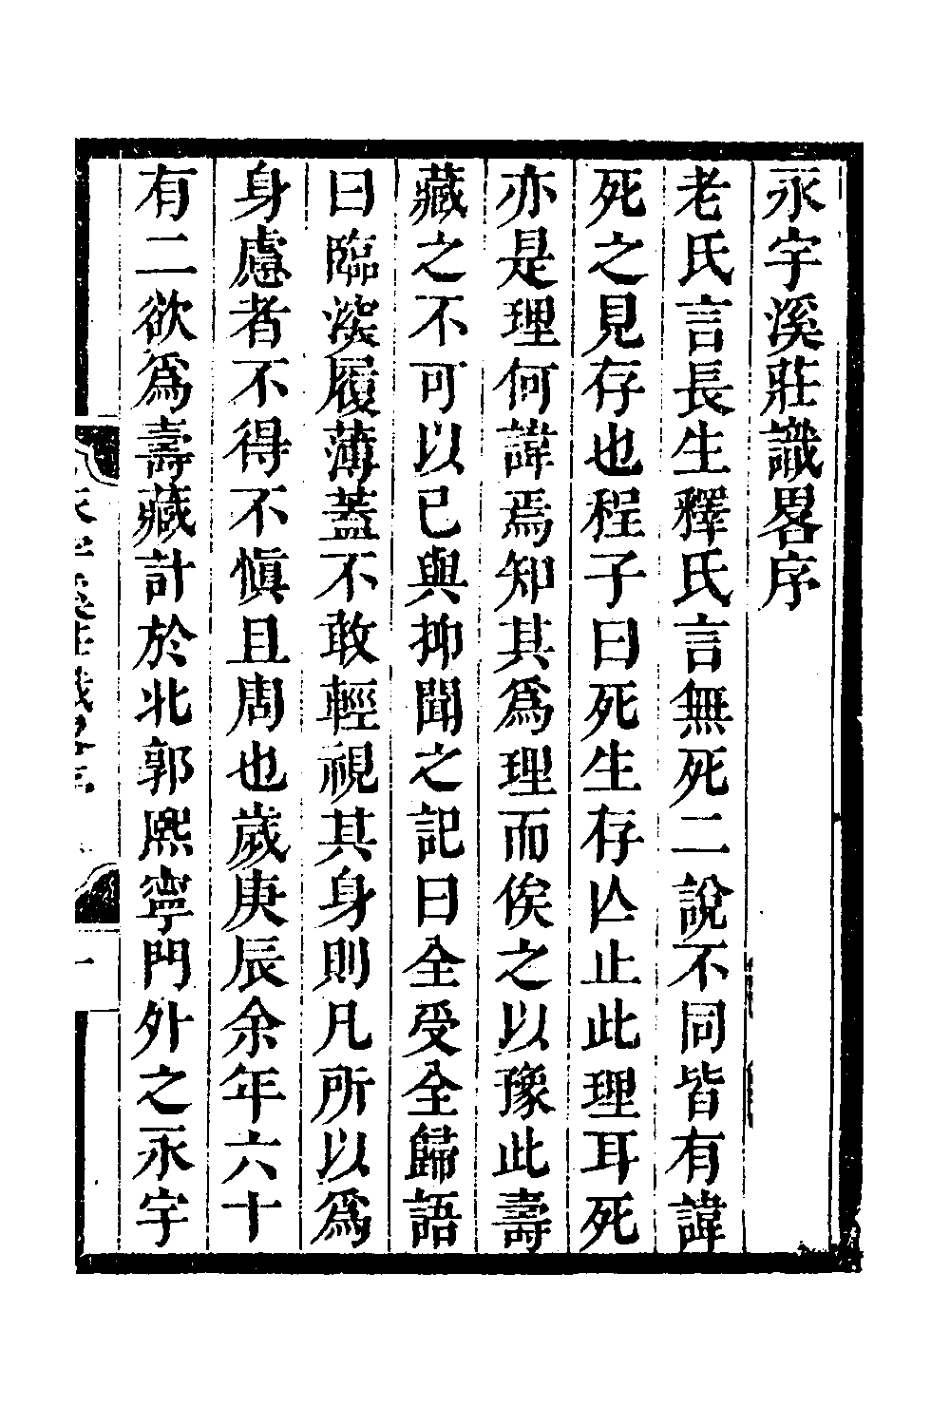 永宇溪莊識畧序
老氏言長生釋氏言無死二說不同皆有諱
死之見存也程子曰死生存亾止此理耳死
亦是理何諱焉知其爲理而俟之以豫此壽
藏之不可以已與抑聞之記曰全受全歸語
曰臨深履薄蓋不敢輕視其身則凡所以爲
身慮者不得不愼且周也歲庚辰余年六十
有二欲爲壽藏計於北郭熙寧門外之永宇
永宇溪莊識畧序
一